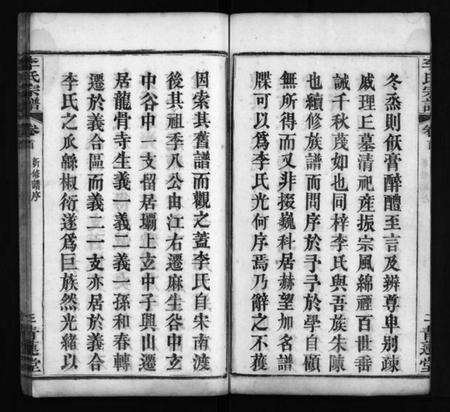 冬烝則飫膏醉醴至言及辨尊卑別疎
戚理正墓清祀產振宗風綿禋百世番
誠千秋茂如也同梓李氏與吾族朱陳
也續修族譜而問序於予予於學自顧
無所得而又非掇巍科居赫望加名譜
牒可以為李氏光何序焉乃辭之不獲
因索其舊譜而觀之蓋李氏自宋南渡
後其祖季八公由江右遷麻生谷中立
中谷中一支留居壩上立中子與山遷
居龍骨寺生義一義二義一孫和春轉
遷於義合區而義二一支亦居於義合
李氏之瓜緜椒衍遂為巨族然光緒以
李氏宗譜
卷首
新修譜序
青蓮堂